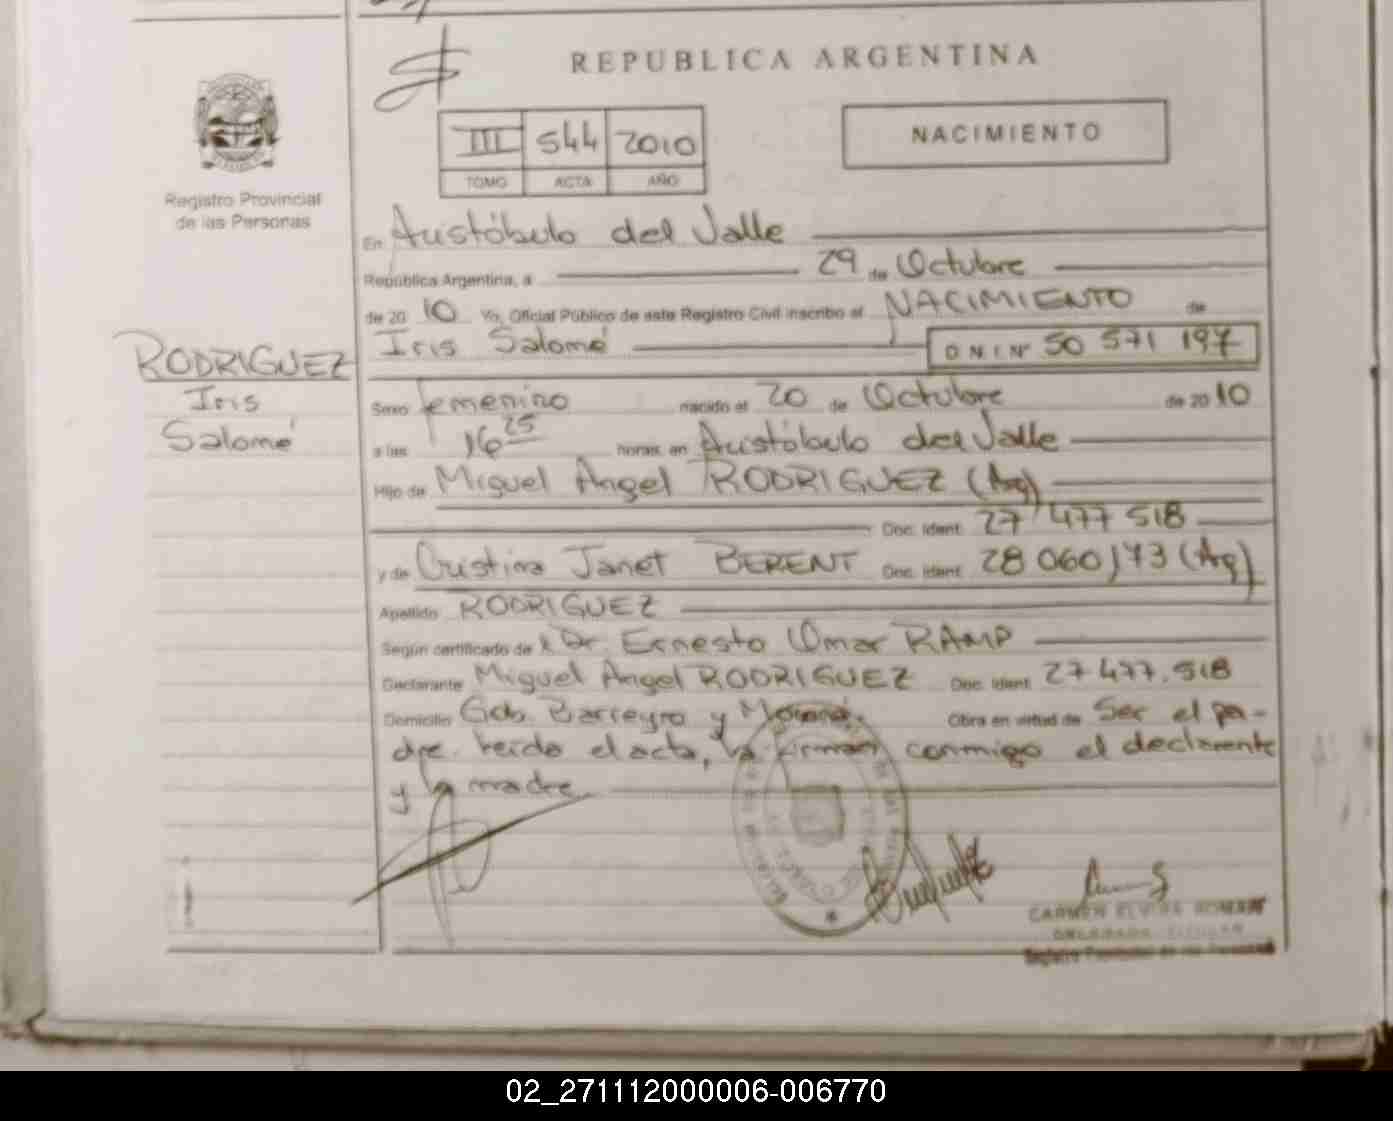 REPUBLICA ARGENTINA
III 544 2010
TOMO ACTA AÑO
NACIMIENTO
Registro Provincial
de las Personas
RODRIGUEZ
Iris
Salomé
En Aristóbulo del Valle
República Argentina, a 29 de Octubre
de 20 10 Yo, Oficial Público de este Registro Civil inscribo el NACIMIENTO de
Iris Salomé D N I Nº 50 571 197
Sexo femenino nacido el 20 de Octubre de 20 10
a las 16 25 horas en Aristóbulo del Valle
Hijo de Miguel Angel RODRIGUEZ (Arg)
Doc. Ident. 27 477 518
y de Cristina Janet BERENT Doc. Ident. 28 060 173 (Arg)
Apellido RODRIGUEZ
Según certificado de Dr. Ernesto Omar RAMP
Declarante Miguel Angel RODRIGUEZ Doc. Ident. 27 477.518
Domicilio Gob. Barreyro y Obra en virtud de Ser el pa-
dre. Leído el acta, la firman conmigo el declarante
y la madre.
CARMEN ELVIRA ROMAN
DELEGADA TITULAR
Registro Provincial de las Personas
02_271112000006-006770